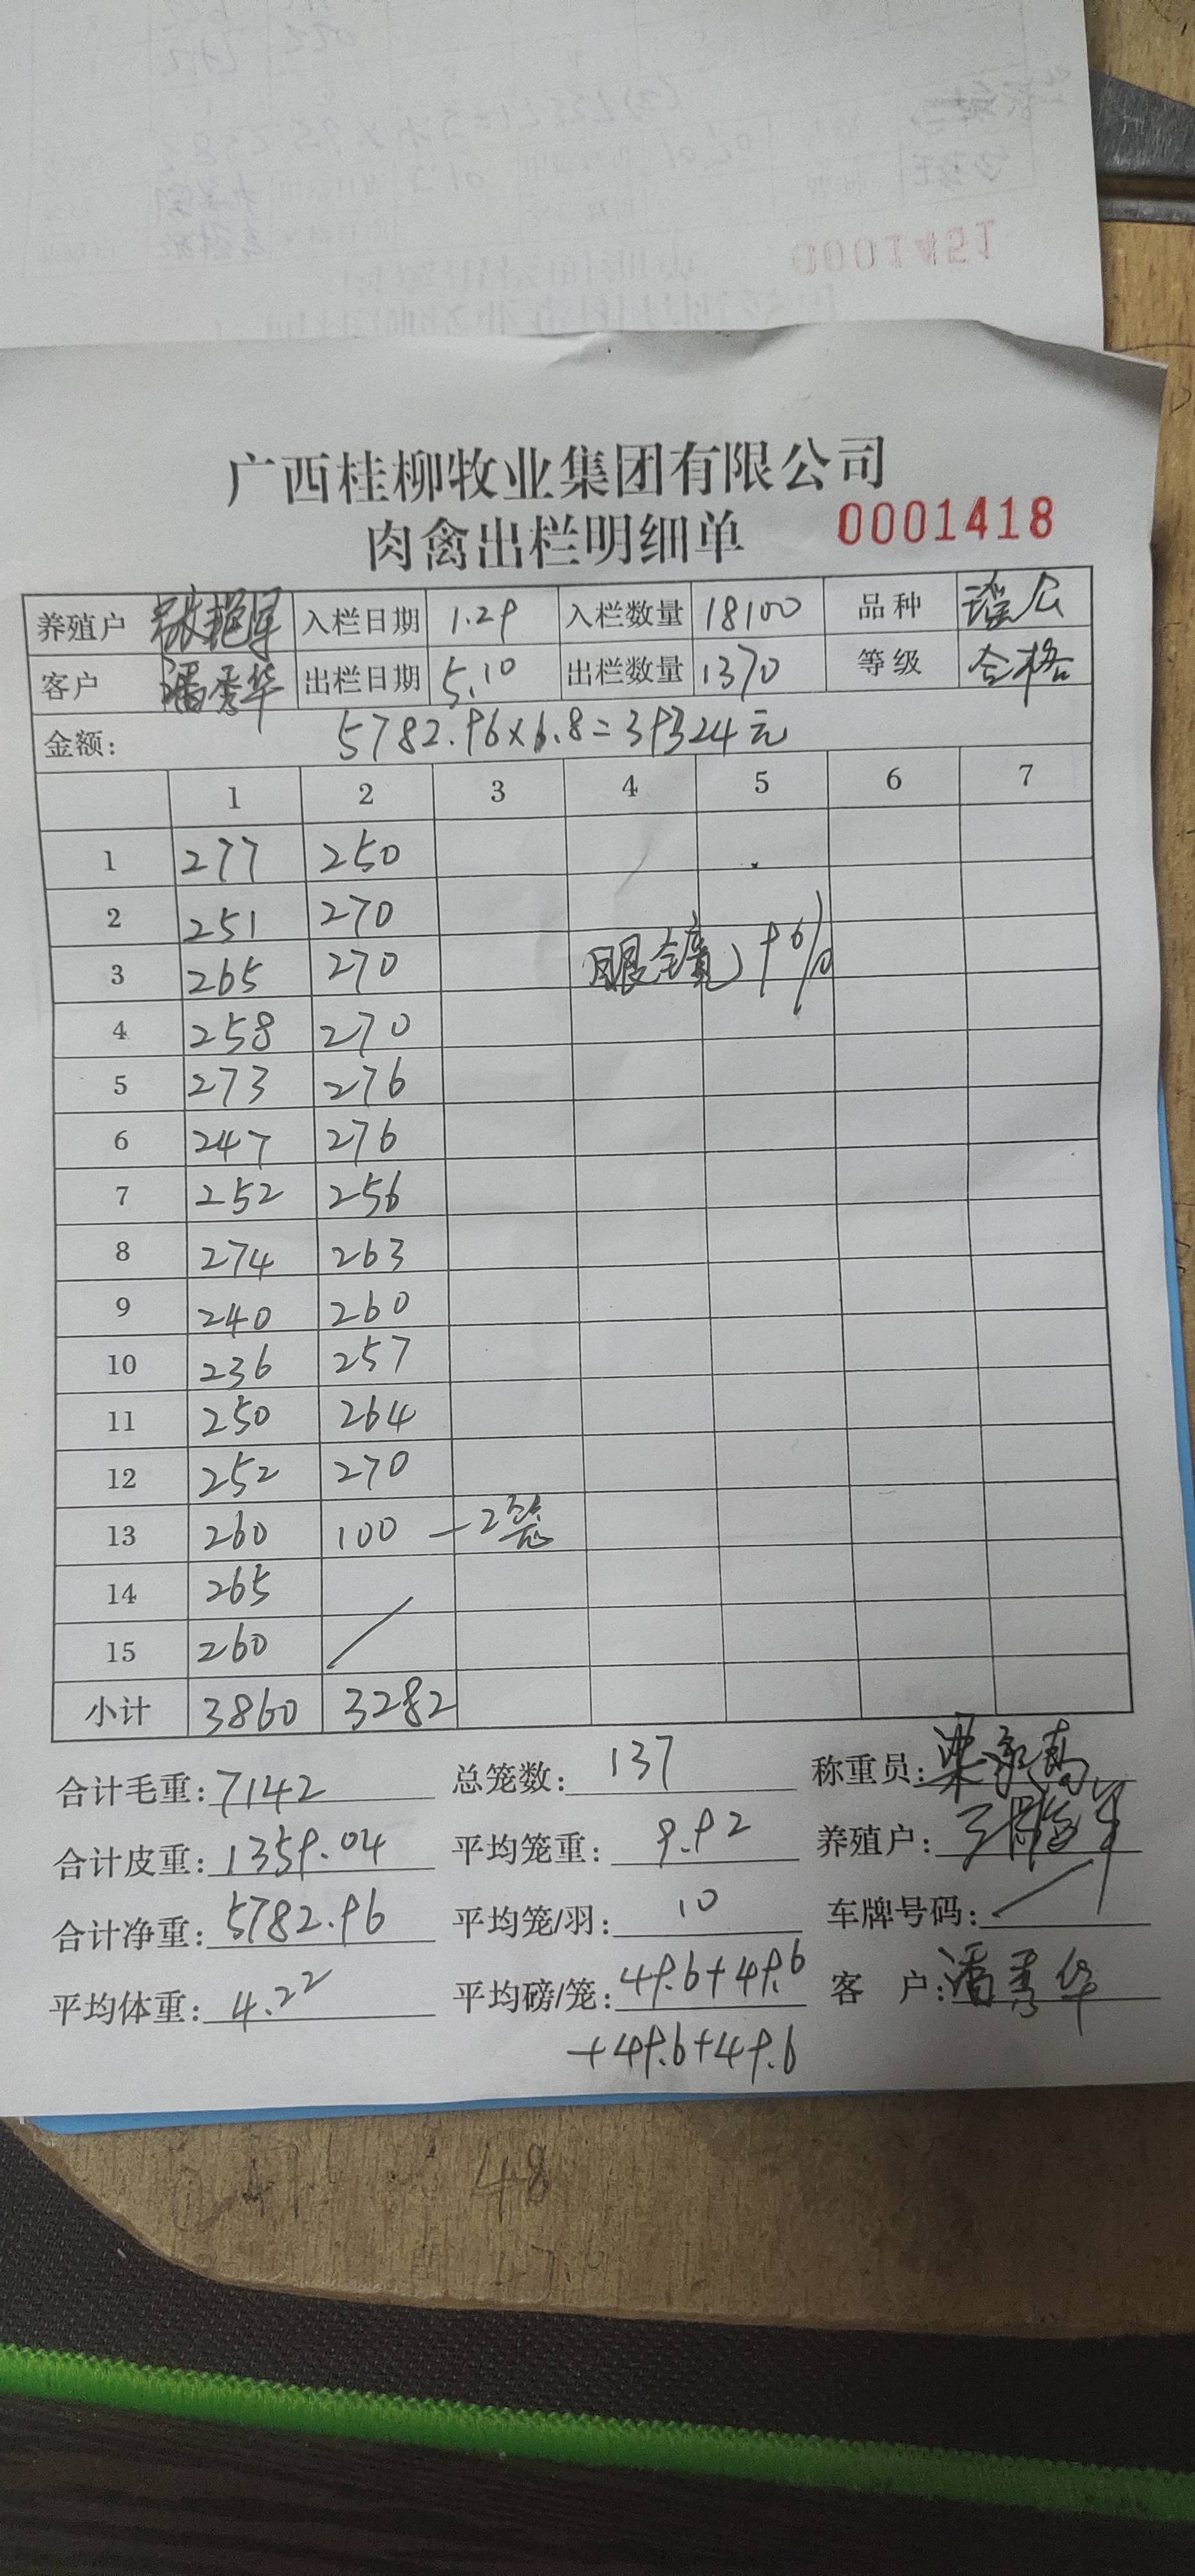 0001451
广西桂柳牧业集团有限公司
肉禽出栏明细单 0001418
养殖户 入栏日期 1.29 入栏数量 18100 品种 瑶公
客户 潘秀华 出栏日期 5.10 出栏数量 1370 等级 合格
金额: 5782.96×6.8=39324元
1 2 3 4 5 6 7
1 277 250
2 251 270
3 265 270 眼镜 96%
4 258 270
5 273 276
6 247 276
7 252 256
8 274 263
9 240 260
10 236 257
11 250 264
12 252 270
13 260 100 —2笼
14 265
15 260
小计 3860 3282
合计毛重: 7142 总笼数: 137 称重员:
合计皮重: 1359.04 平均笼重: 9.92 养殖户:
合计净重: 5782.96 平均笼/羽: 10 车牌号码:
平均体重: 4.22 平均磅/笼: 49.6+49.6 客 户: 潘秀华
+49.6+49.6
48